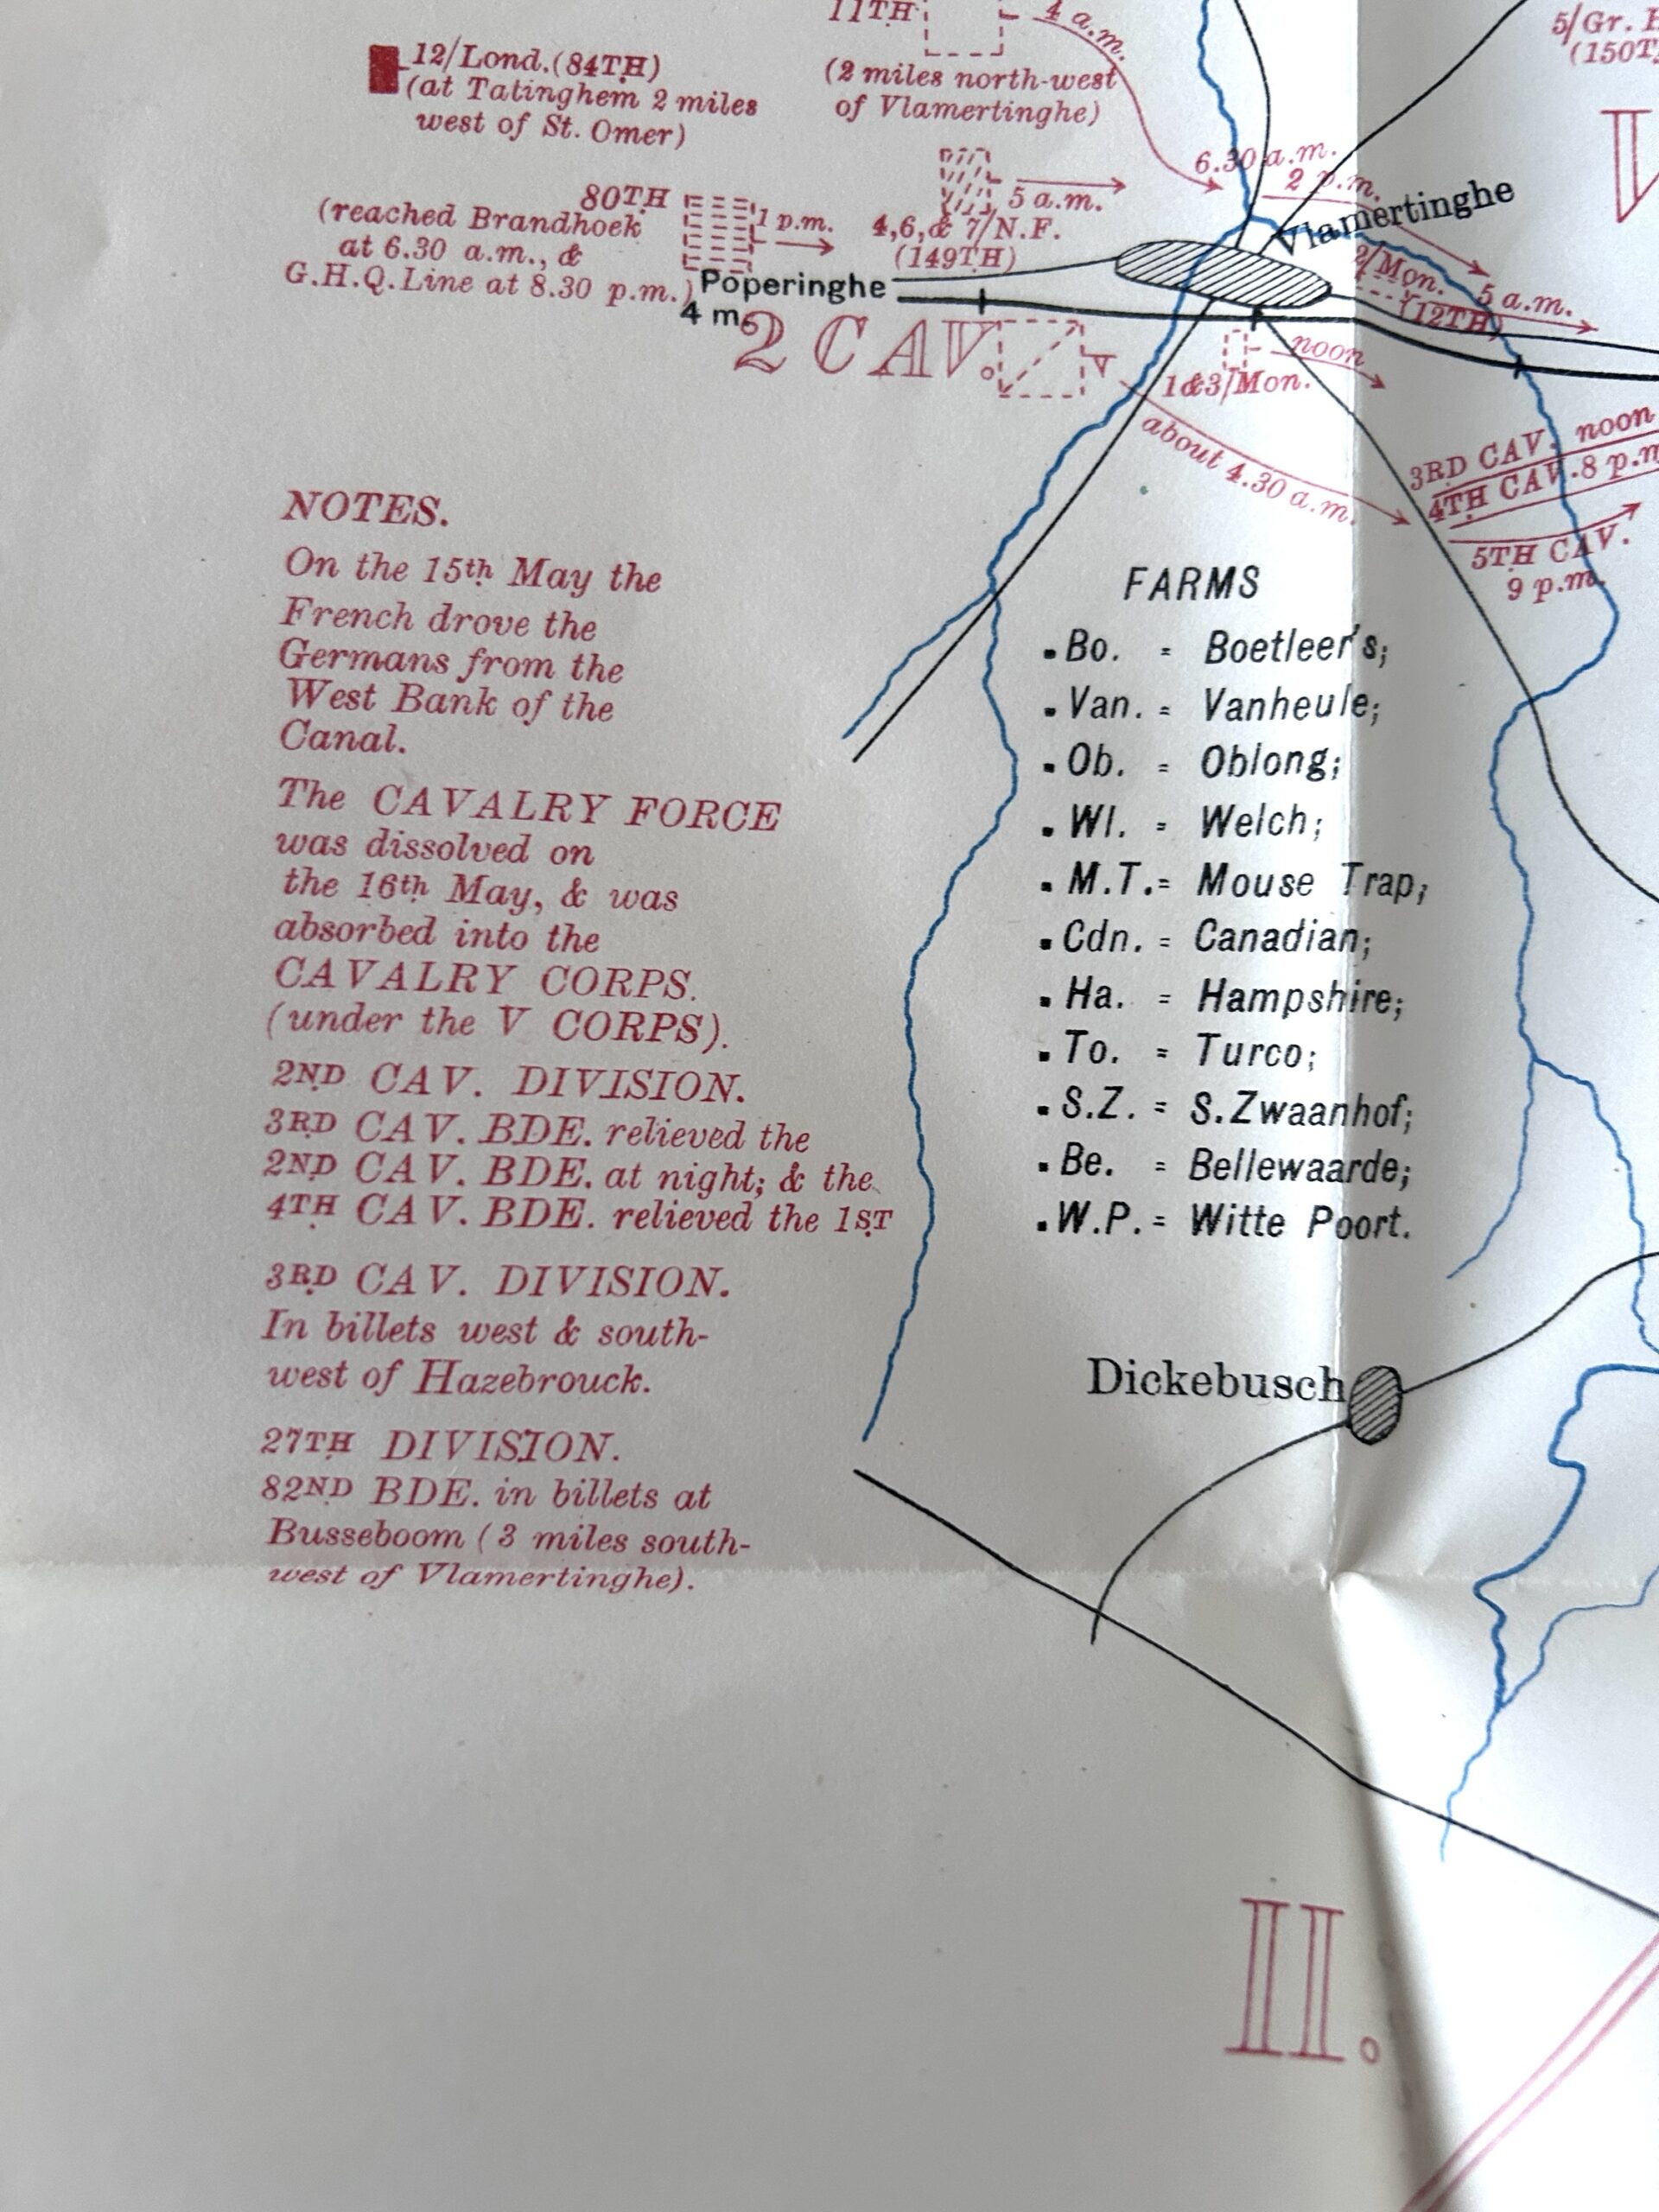 11TH
4 a.m.
12/Lond.(84TH)
(at Tatinghem 2 miles
west of St. Omer)
(2 miles north-west
of Vlamertinghe)
5/Gr.
(150T
6.30 a.m.
2 p.m.
Vlamertinghe
80TH
(reached Brandhoek
at 6.30 a.m., &
G.H.Q. Line at 8.30 p.m.)
1 p.m.
5 a.m.
4,6,& 7/N.F.
(149TH)
Poperinghe
4 m.
2/Mon.
(12TH)
5 a.m.
2 CAV.
noon
1&3/Mon.
about 4.30 a.m.
3RD CAV. noon
4TH CAV. 8 p.m
5TH CAV.
9 p.m.
NOTES.
On the 15th May the
French drove the
Germans from the
West Bank of the
Canal.
The CAVALRY FORCE
was dissolved on
the 16th May, & was
absorbed into the
CAVALRY CORPS.
(under the V CORPS).
2ND CAV. DIVISION.
3RD CAV. BDE. relieved the
2ND CAV. BDE. at night; & the
4TH CAV. BDE. relieved the 1ST
3RD CAV. DIVISION.
In billets west & south-
west of Hazebrouck.
27TH DIVISION.
82ND BDE. in billets at
Busseboom (3 miles south-
west of Vlamertinghe).
FARMS
.Bo. = Boetleer's;
.Van. = Vanheule;
.Ob. = Oblong;
.Wl. = Welch;
.M.T.= Mouse Trap;
.Cdn. = Canadian;
.Ha. = Hampshire;
.To. = Turco;
.S.Z. = S.Zwaanhof;
.Be. = Bellewaarde;
.W.P.= Witte Poort.
Dickebusch
II.